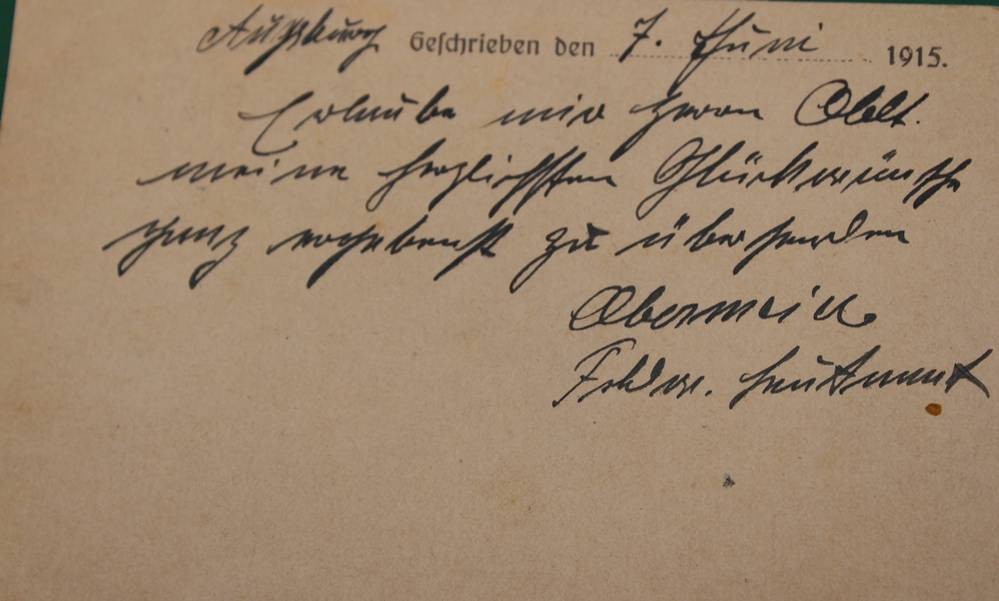 Augsburg Geschrieben den 7. Juni 1915.
Erlaube mir Herrn Oblt.
meine herzlichsten Glückwünsche
ganz ergebenst zu übersenden
Feldw. Leutnant